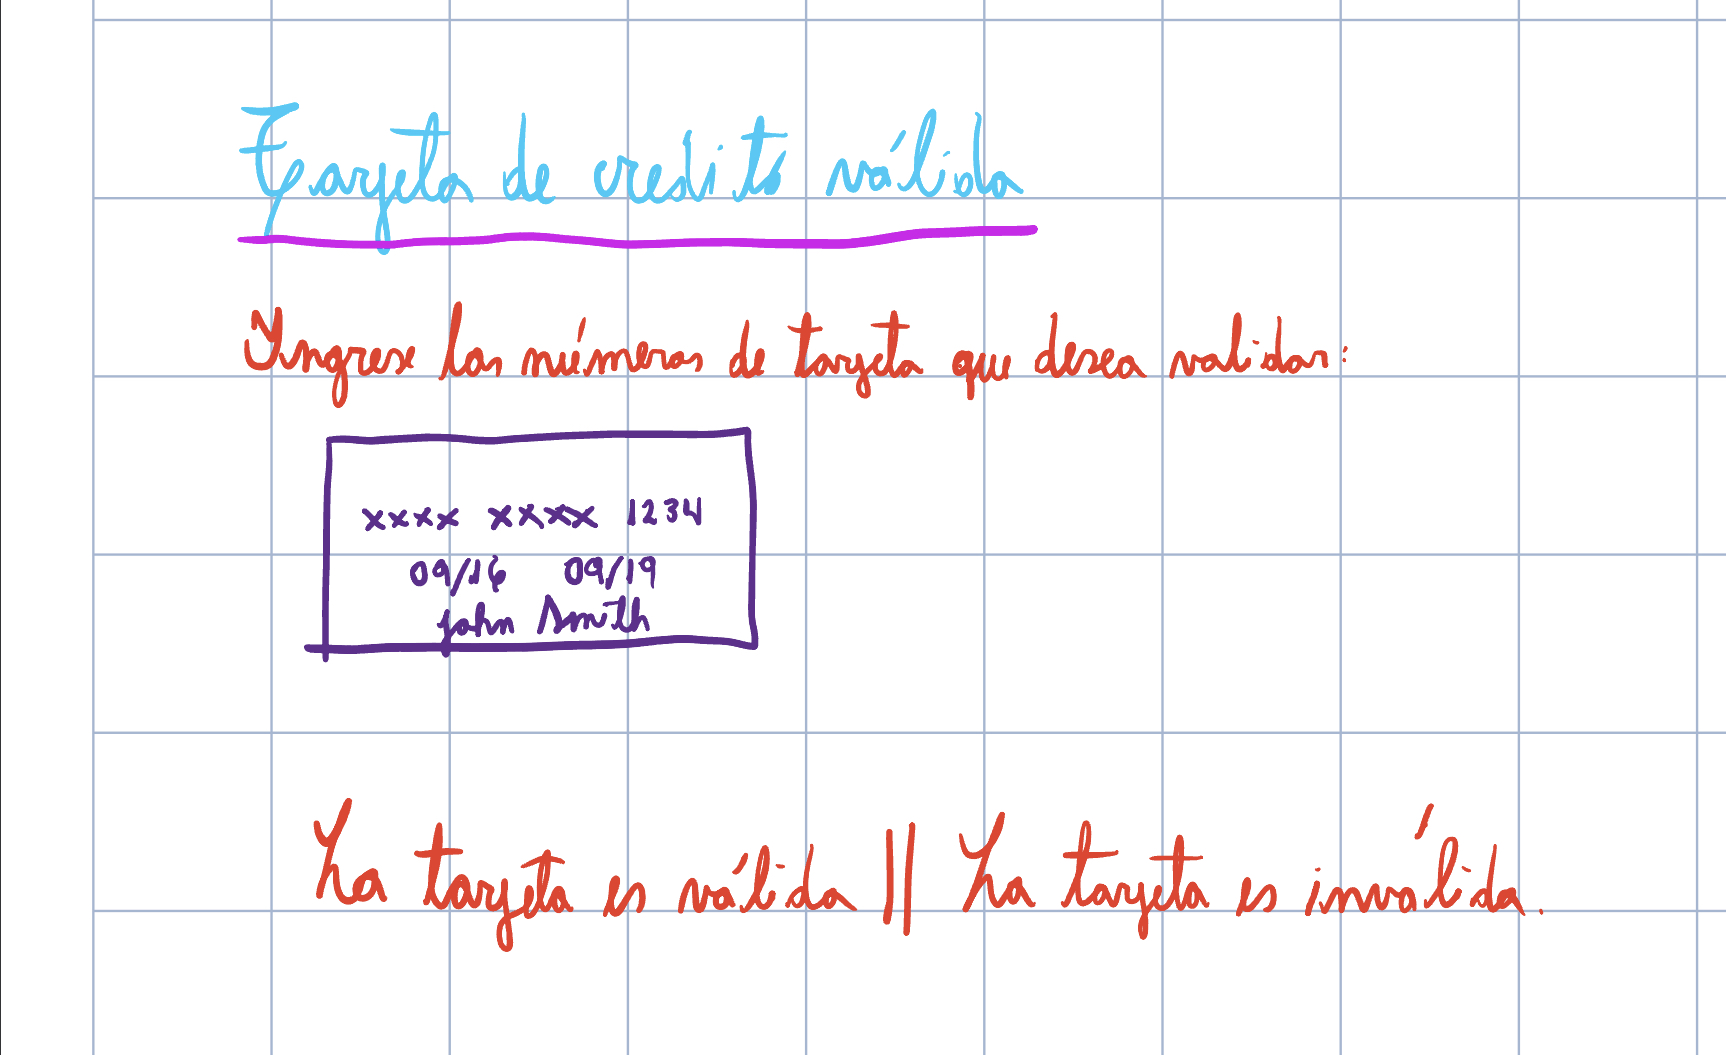 Tarjeta de credito válida
Ingrese los números de tarjeta que desea validar:
xxxx xxxx 1234
09/16 09/19
john Smith
La tarjeta es válida || La tarjeta es inválida.